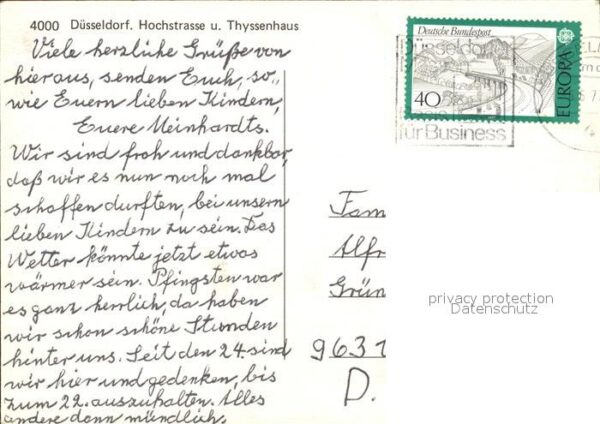 4000 Düsseldorf. Hochstrasse u. Thyssenhaus
Viele herzliche Grüße von
hieraus, senden Euch, so
wie Euern lieben Kindern,
Euere Meinhardts.
Wir sind froh und dankbar,
daß wir es nun noch mal
schaffen durften, bei unsern
lieben Kindern zu sein. Das
Wetter könnte jetzt etwas
wärmer sein. Pfingsten war
es ganz herrlich, da haben
wir schon schöne Stunden
hinter uns. Seit den 24. sind
wir hier und gedenken, bis
zum 22. auszuhalten. Alles
andere dann mündlich.
Deutsche Bundespost
40
EUROPA
Düsseldorf
für Business
Fam
Alfr
Grün
9631
D.
privacy protection
Datenschutz